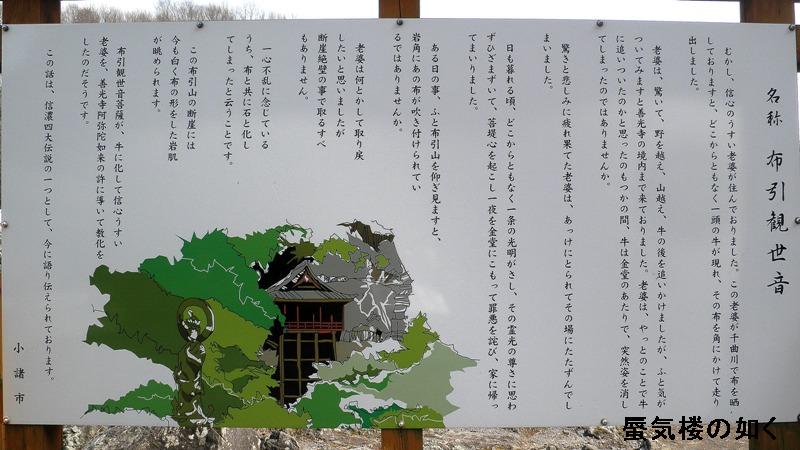 名称 布引観世音
むかし、信心のうすい老婆が住んでおりました。この老婆が千曲川で布を晒
しておりますと、どこからともなく一頭の牛が現れ、その布を角にかけて走り
出しました。
老婆は、驚いて、野を越え、山越え、牛の後を追いかけましたが、ふと気が
ついてみますと善光寺の境内まで来ておりました。老婆は、やっとのことで牛
に追いついたのかと思ったのもつかの間、牛は金堂のあたりで、突然姿を消し
てしまったのではありませんか。
驚きと悲しみに疲れ果てた老婆は、あっけにとられてその場にたたずんでし
まいました。
日も暮れる頃、どこからともなく一条の光明がさし、その霊光の尊さに思わ
ずひざまずいて、菩提心を起こし一夜を金堂にこもって罪悪を詫び、家に帰っ
てまいりました。
ある日の事、ふと布引山を仰ぎ見ますと、
岩角にあの布が吹き付けられてい
るではありませんか。
老婆は何とかして取り戻
したいと思いましたが
断崖絶壁の事で取るすべ
もありません。
一心不乱に念じている
うち、布と共に石と化し
てしまったと云うことです。
この布引山の断崖には
今も白く布の形をした岩肌
が眺められます。
布引観世音菩薩が、牛に化して信心うすい
老婆を、善光寺阿弥陀如来の許に導いて教化を
したのだそうです。
この話は、信濃四大伝説の一つとして、今に語り伝えられております。
小諸市
蜃気楼の如く